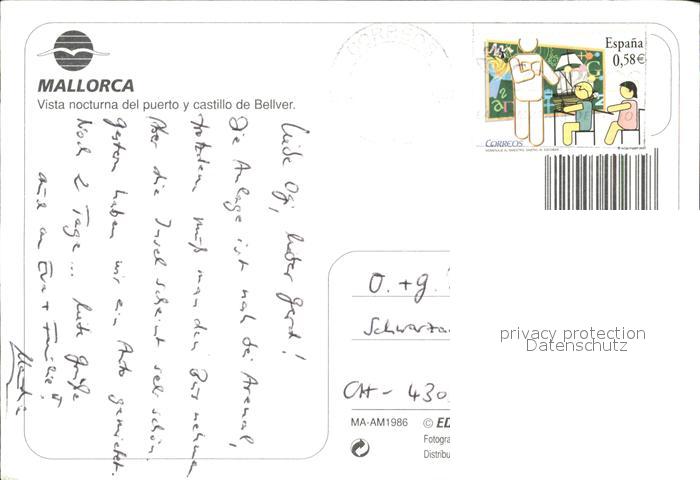 MALLORCA
Vista nocturna del puerto y castillo de Bellver.
Liebe Ogi, lieber Gerd!
Die Anlage ist nah bei Arenal,
trotzdem muß man den Bus nehmen.
Aber die Insel scheint sehr schön.
Gestern haben wir ein Auto gemietet.
Noch 2 Tage... liebe Grüße
auch an Eva + Familie
CORREOS
España
0,58€
CORREOS
O. + G.
CH - 430
MA-AM1986 © ED
Fotogra
Distribu
privacy protection
Datenschutz